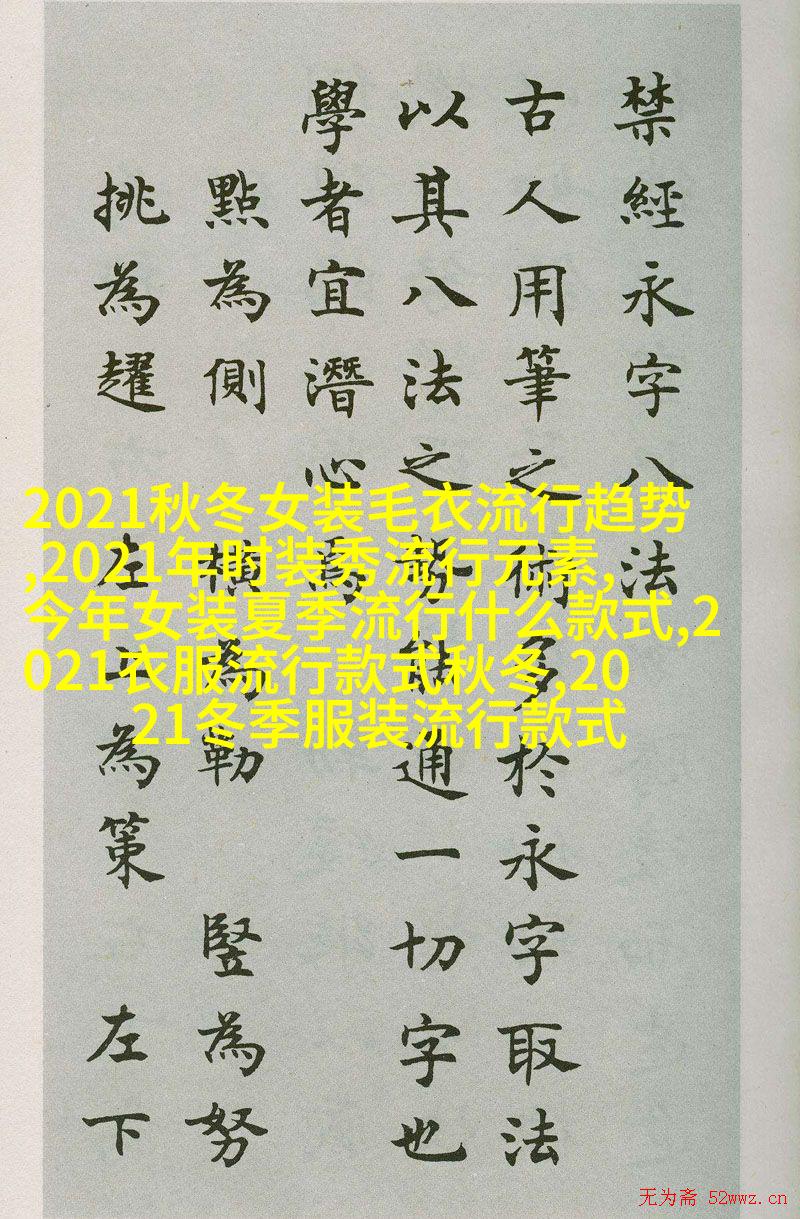 禁經永字八法
古人用筆之術多於永字取法
以其八法之勢能通一切字也
學者宜潛心焉
點為側 橫為勒 竪為努
挑為趯 左上為策 左下
2021秋冬女装毛衣流行趋势
,2021年时装秀流行元素,
今年女装夏季流行什么款式,2
021衣服流行款式秋冬,20
21冬季服装流行款式
无为斋 52wwz.cn